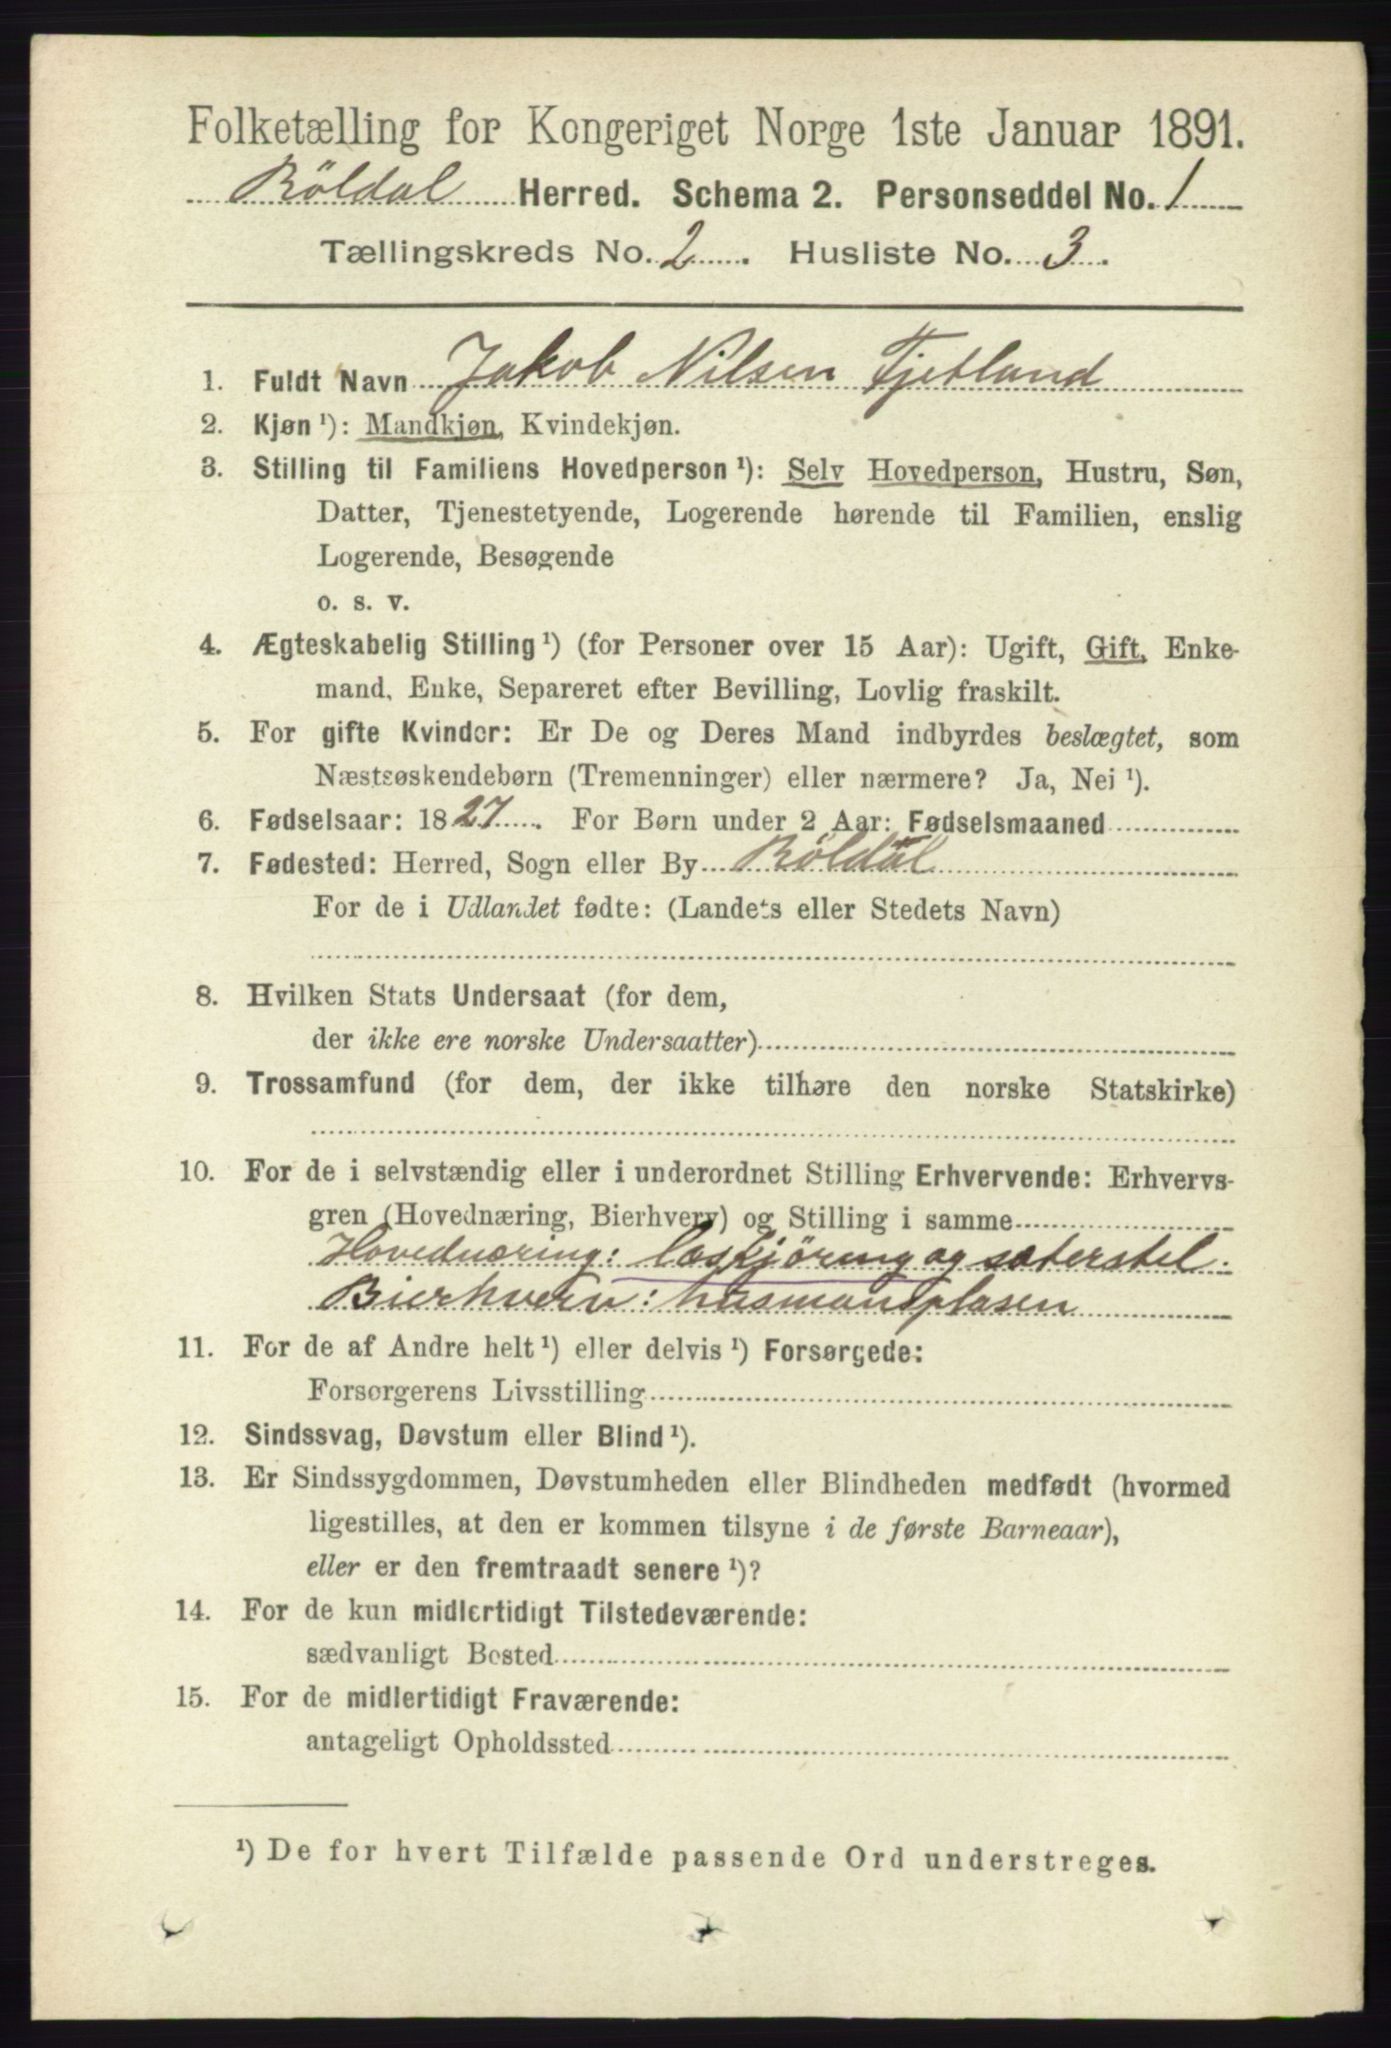 Folketælling for Kongeriget Norge 1ste Januar 1891.
Röldal Herred. Schema 2. Personseddel No. 1
Tællingskreds No. 2. Husliste No. 3.
1. Fuldt Navn Jakob Nilsen Fjetland
2. Kjøn ¹): Mandkjøn, Kvindekjøn.
3. Stilling til Familiens Hovedperson ¹): Selv Hovedperson, Hustru, Søn,
Datter, Tjenestetyende, Logerende hørende til Familien, enslig
Logerende, Besøgende
o. s. v.
4. Ægteskabelig Stilling ¹) (for Personer over 15 Aar): Ugift, Gift, Enke-
mand, Enke, Separeret efter Bevilling, Lovlig fraskilt.
5. For gifte Kvinder: Er De og Deres Mand indbyrdes beslægtet, som
Næstsøskendebørn (Tremenninger) eller nærmere? Ja, Nei ¹).
6. Fødselsaar: 1827. For Børn under 2 Aar: Fødselsmaaned
7. Fødested: Herred, Sogn eller By Röldal
For de i Udlandet fødte: (Landets eller Stedets Navn)
8. Hvilken Stats Undersaat (for dem,
der ikke ere norske Undersaatter)
9. Trossamfund (for dem, der ikke tilhøre den norske Statskirke)
10. For de i selvstændig eller i underordnet Stilling Erhvervende: Erhvervs-
gren (Hovednæring, Bierhverv) og Stilling i samme
Hovednæring: læskjöring og sæterstel.
Bierhverv: husmandsplasen
11. For de af Andre helt ¹) eller delvis ¹) Forsørgede:
Forsørgerens Livsstilling
12. Sindssvag, Døvstum eller Blind ¹).
13. Er Sindssygdommen, Døvstumheden eller Blindheden medfødt (hvormed
ligestilles, at den er kommen tilsyne i de første Barneaar),
eller er den fremtraadt senere ¹)?
14. For de kun midlertidigt Tilstedeværende:
sædvanligt Bosted
15. For de midlertidigt Fraværende:
antageligt Opholdssted
¹) De for hvert Tilfælde passende Ord understreges.